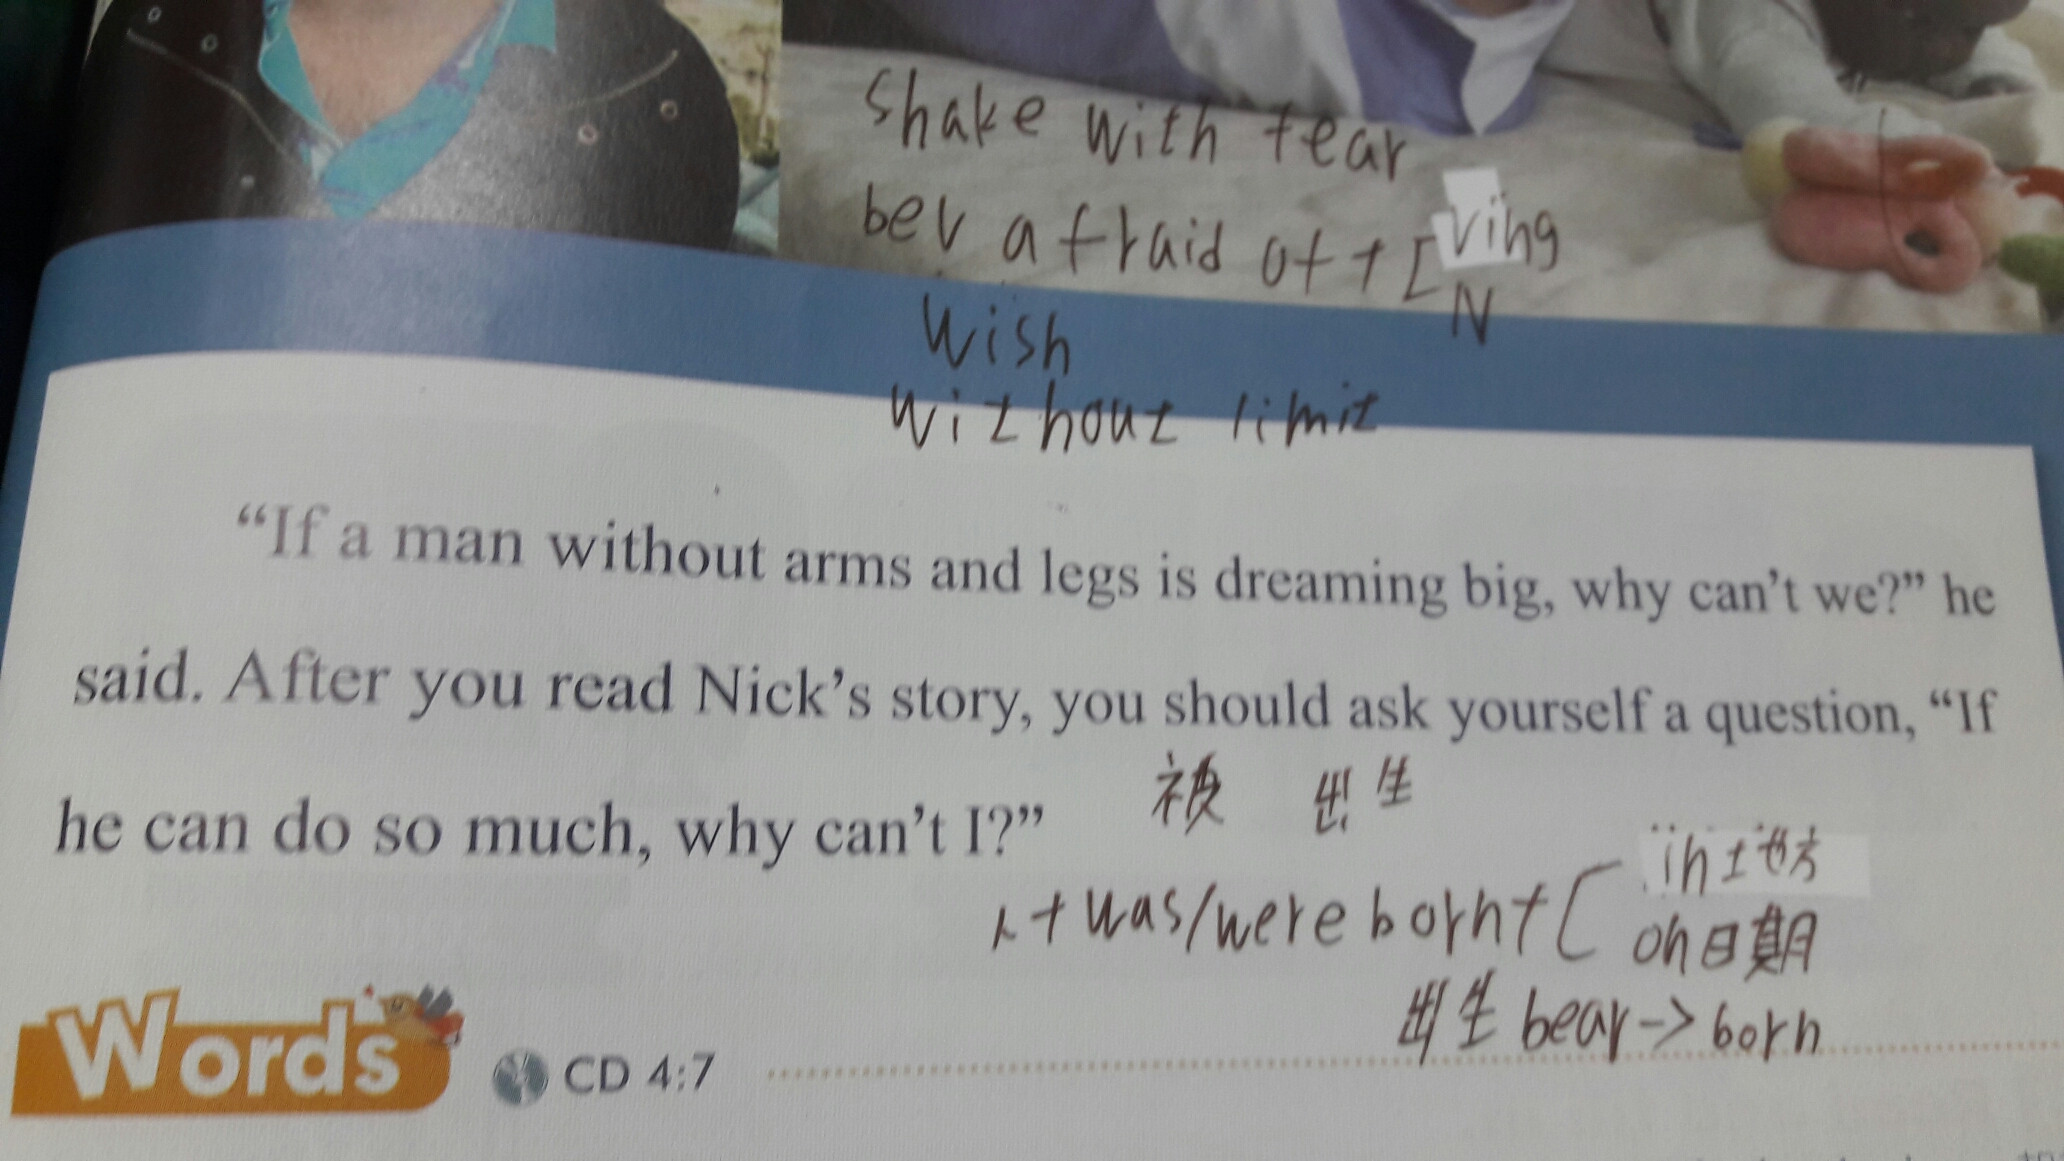 shake with fear
beV afraid of + [Ving
N
Wish
without limit
“If a man without arms and legs is dreaming big, why can’t we?” he
said. After you read Nick’s story, you should ask yourself a question, “If
he can do so much, why can’t I?”
被 出生
in地方
人+was/were born+[
on日期
出生 bear->born
Words CD 4:7